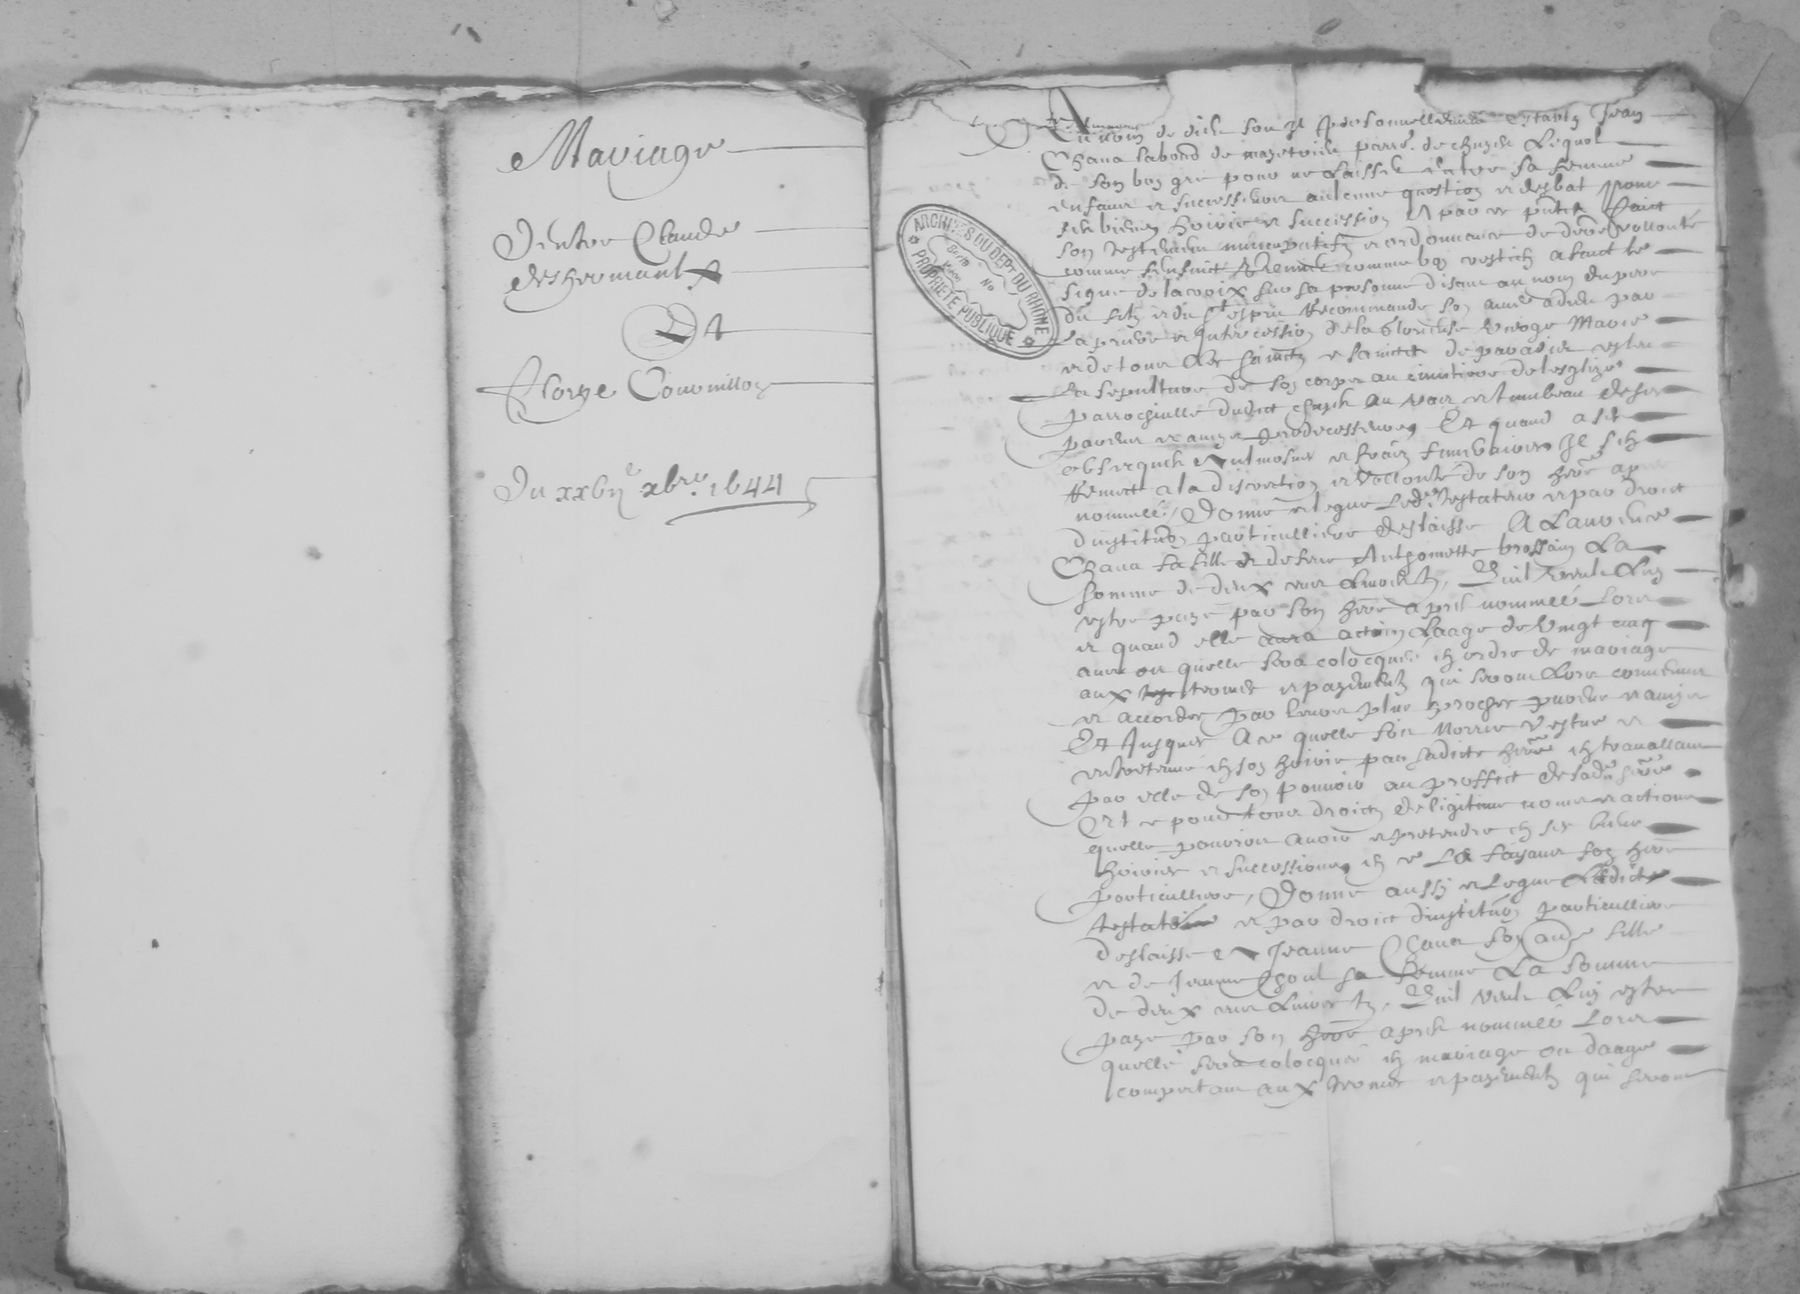 Mariage
D'entre Claude
deshermaulx
Et
Florye Couvrillon
Du xxbij xbre 1644
ARCHIVES DU DEPT DU RHONE
PROPRIETE PUBLIQUE
Au nom de dieu soit personnellement estably Jean
Chana labond de parre de Lequel
de son bon gré pour ne laisser entre sa femme
enfans et successeurs aulcune question et desbat pour
ses biens hoirie et succession A par ce pnter faict
son testement nuncupatif et ordonnance de derre vollonté
comme s'ensuict comme bon a faict le
signe de la croix sur sa personne disant au nom du pere
du filz et du st esprit Recommande son ame a dieu par
la priere et Intercession de la glorieuse vierge Marie
et de tous les sainctz et sainctes de paradis eslu
sa sepulture de son corps au cimitiere de lesglize
parrochialle dudict au vas et tumbeau de ses
parens et amys predecesseurs Et quand a ses
obseques aulmosnes et fraiz funeraires Il s'en
Remect a la discretion et vollonté de son here apres
nommée, Donne et legue led. testateur et par droict
d'institun particulliere deslaisse A Laurence
Chana sa fille et de feue Anthoinette brossain La
somme de deux livres tz, Quil veult luy
estre payé par son here apres nommée lors
et quand elle aura attein laage de vingt cinq
ans ou quelle sera colocquée en ordre de mariage
aux termes et payementz qui seront lors convenus
et accordes par leurs plus proches parens et amys
Et Jusques A ce quelle soit Norrie vestue et
entretenue en son hoirie par sadicte here en travaillant
par elle de son pouvoir au proffict de sad. here
Et ce pour tous droictz de ligitime noms et actions
quelle pourroit avoir et pretendre en ses biens
hoirie et successions en ce La faisant son here
particulliere, Donne aussy et legue Ledict
testateur et par droict d'institun particulliere
deslaisse A Jeanne Chana son fille
et de Jeanne sa femme La somme
de deux livres tz, Quil veult luy estre
payé par son here apres nommée lors
quelle sera colocquée en mariage ou daage
competant aux termes et payementz qui seront